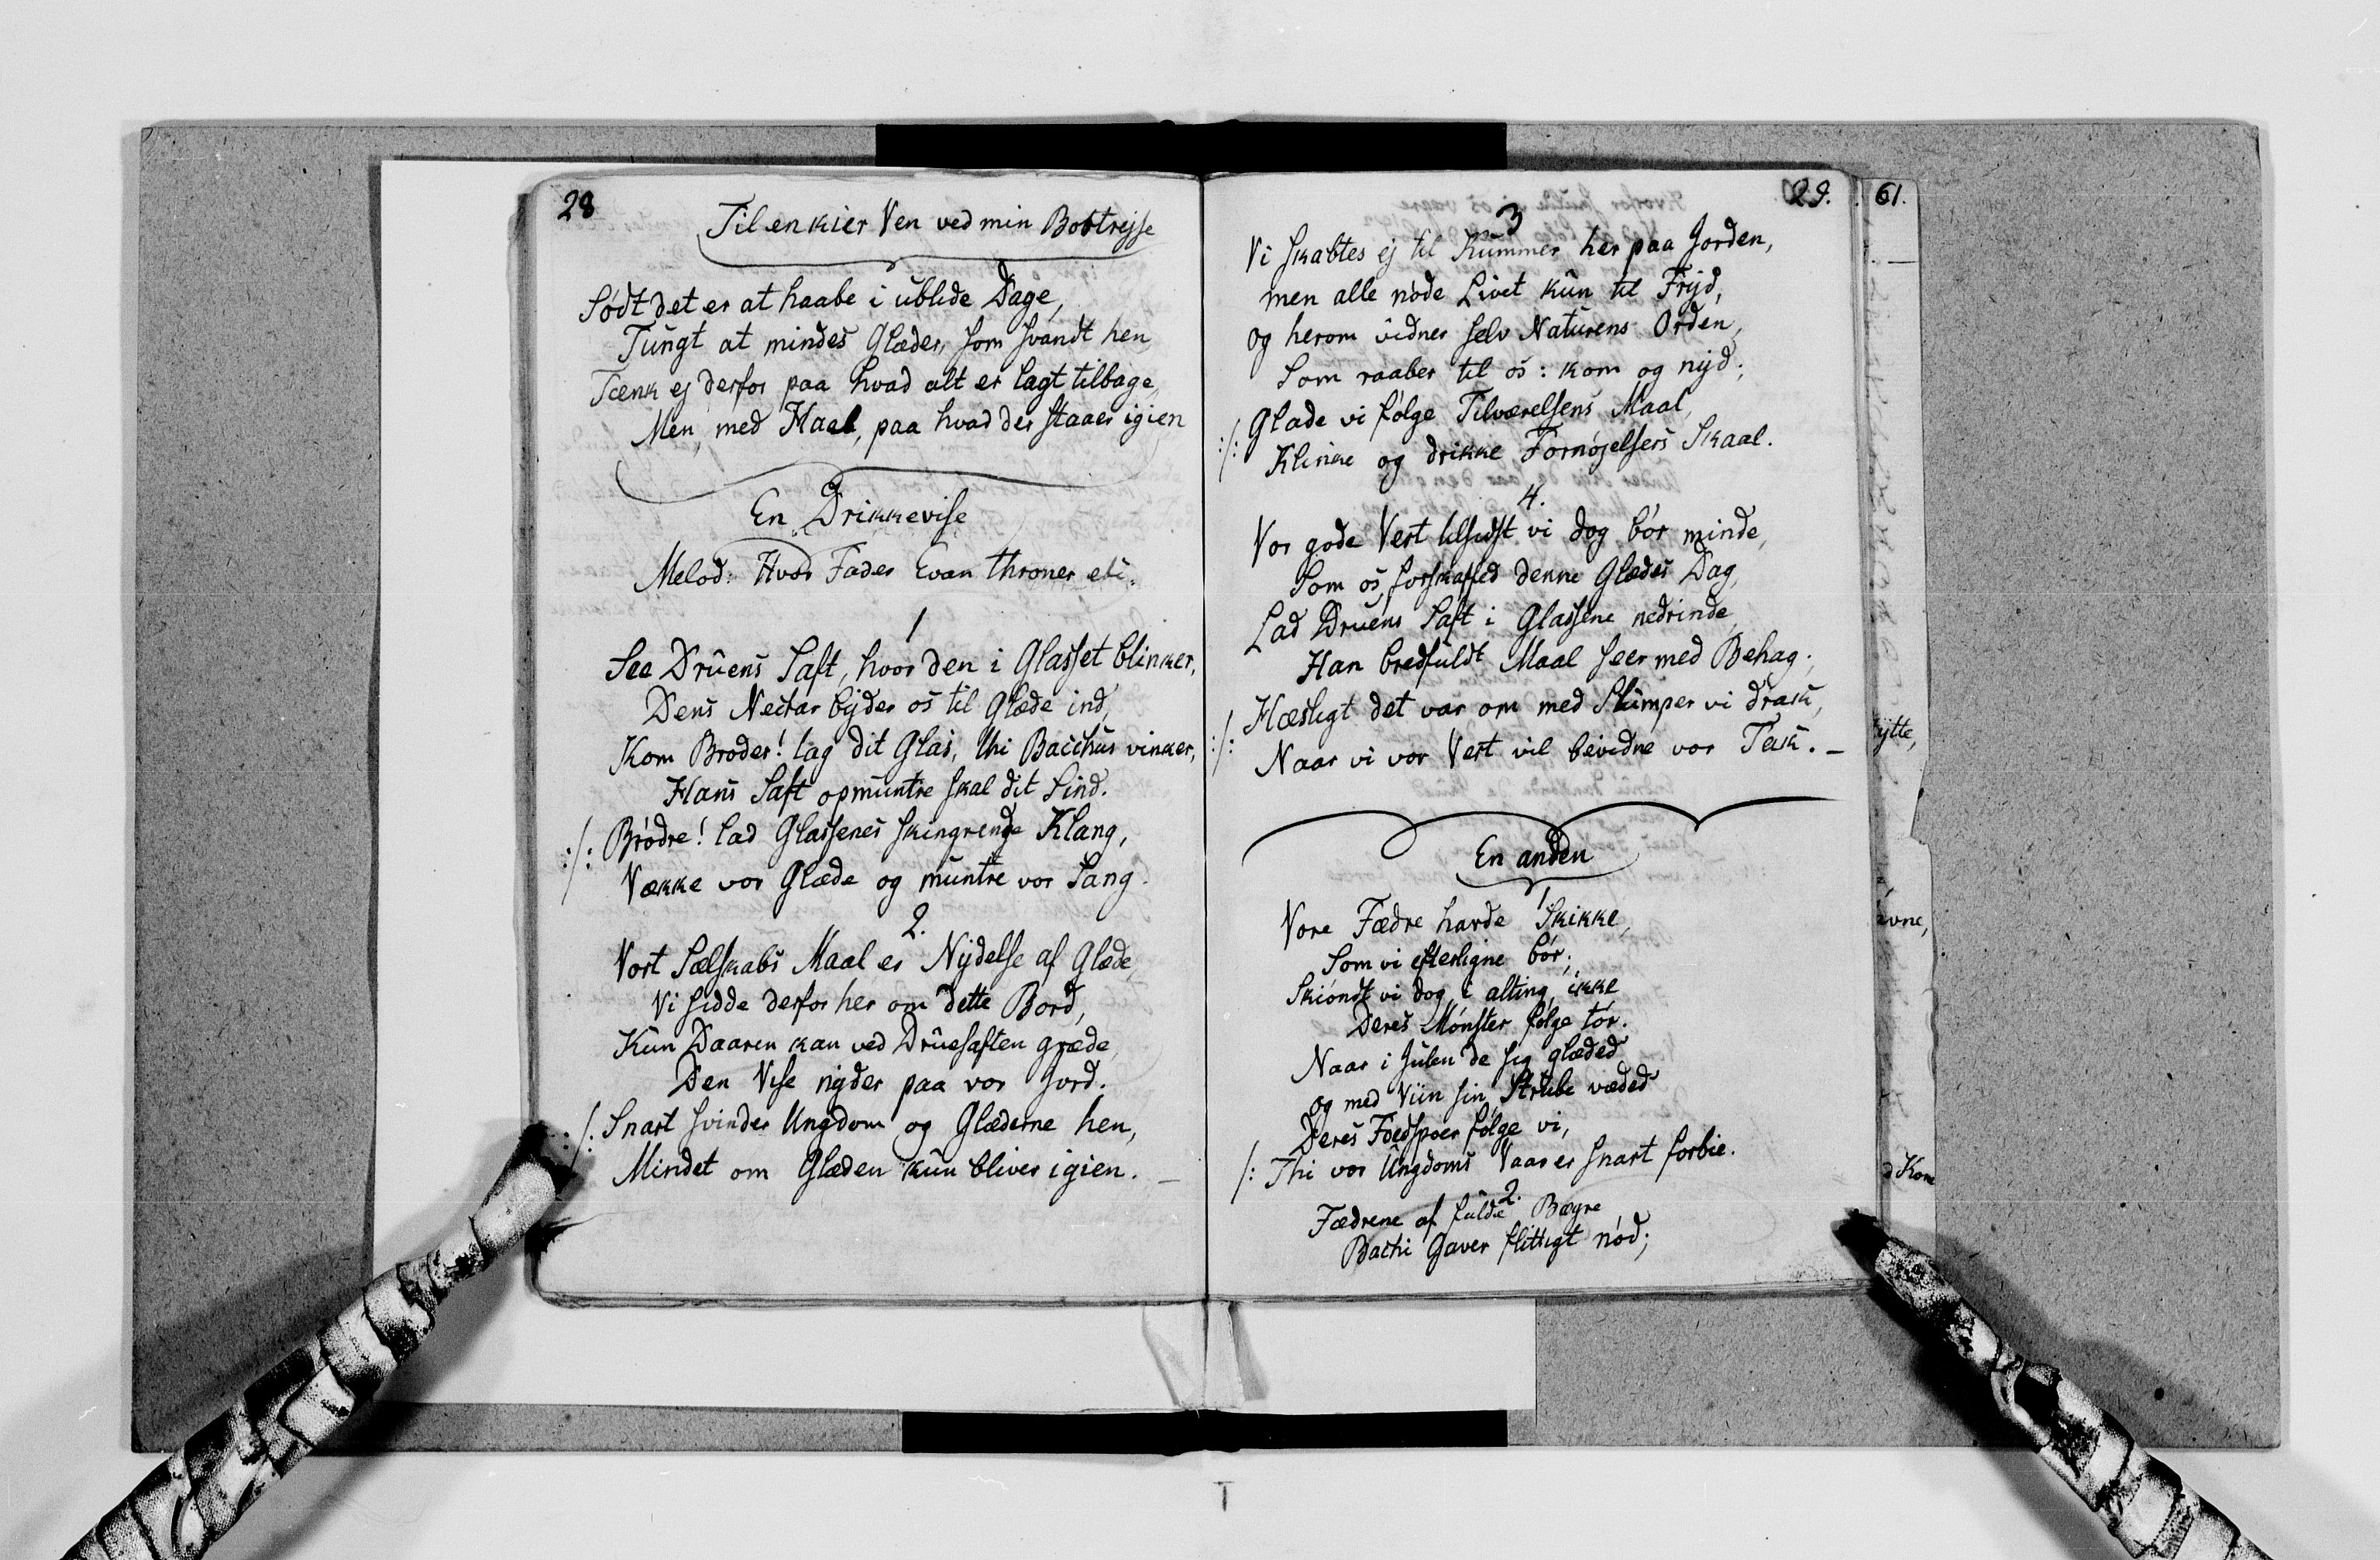 28
Til en kier Ven ved min Bortrejse
Södt det er at haabe i ublide Dage,
Tungt at mindes Glæder, som svandt hen
Tænk ej derfor paa hvad alt er lagt tilbage,
Men, med Haab, paa hvad der staaer igien
En Drikkevise
Melod: Hvor Fader Evan throner etc.
1
See Druens Saft, hvor den i Glasset blinker,
Dens Nectar byder os til Glæde ind,
Kom Broder! tag dit Glas, thi Bacchus vinker,
Hans Saft opmuntre skal dit Sind.
:/: Brødre! lad Glassenes skingrende Klang,
Vække vor Glæde og muntre vor Sang.
2.
Vort Sælskabs Maal er Nydelse af Glæde,
Vi sidde derfor her om dette Bord,
Kun Daaren kan ved Druesaften græde,
Den Vise nyder paa vor Jord.
:/: Snart svinder Ungdom og Glæderne hen,
Mindet om Glæden kun bliver igien. –
29.
3
Vi skabtes ej til Kummer her paa Jorden,
men alle nøde Livet kun til Fryd,
og herom vidner selv Naturens Orden,
Som raaber til os: kom og nyd;
:/: Glade vi følge Tilværelsens Maal,
Klinke og drikke Fornøjelsers Skaal.
4.
Vor gode Vert tilsidst vi dog bør minde,
Som os forskaffed denne Glædes Dag,
Lad Druens Saft i Glassene nedrinde
Han bredfuldt Maal seer med Behag;
:/: Hæsligt det var om med Slumper vi drak,
Naar vi vor Vert vil bevidne vor Tak. –
En anden
1
Vore Fædre havde Skikke,
Som vi efterligne bør;
Skiøndt vi dog i alting ikke
Deres Mønster følge tør.
Naar i Julen de sig glæded
og med Viin sin Strube væded
Deres Foedspoer følge vi,
/: Thi vor Ungdoms Vaar er snart forbie.
2.
Fædrene af fulde Bægre
Bachi Gaver flittigt nød;
61.
ytte,
vne,
Kom